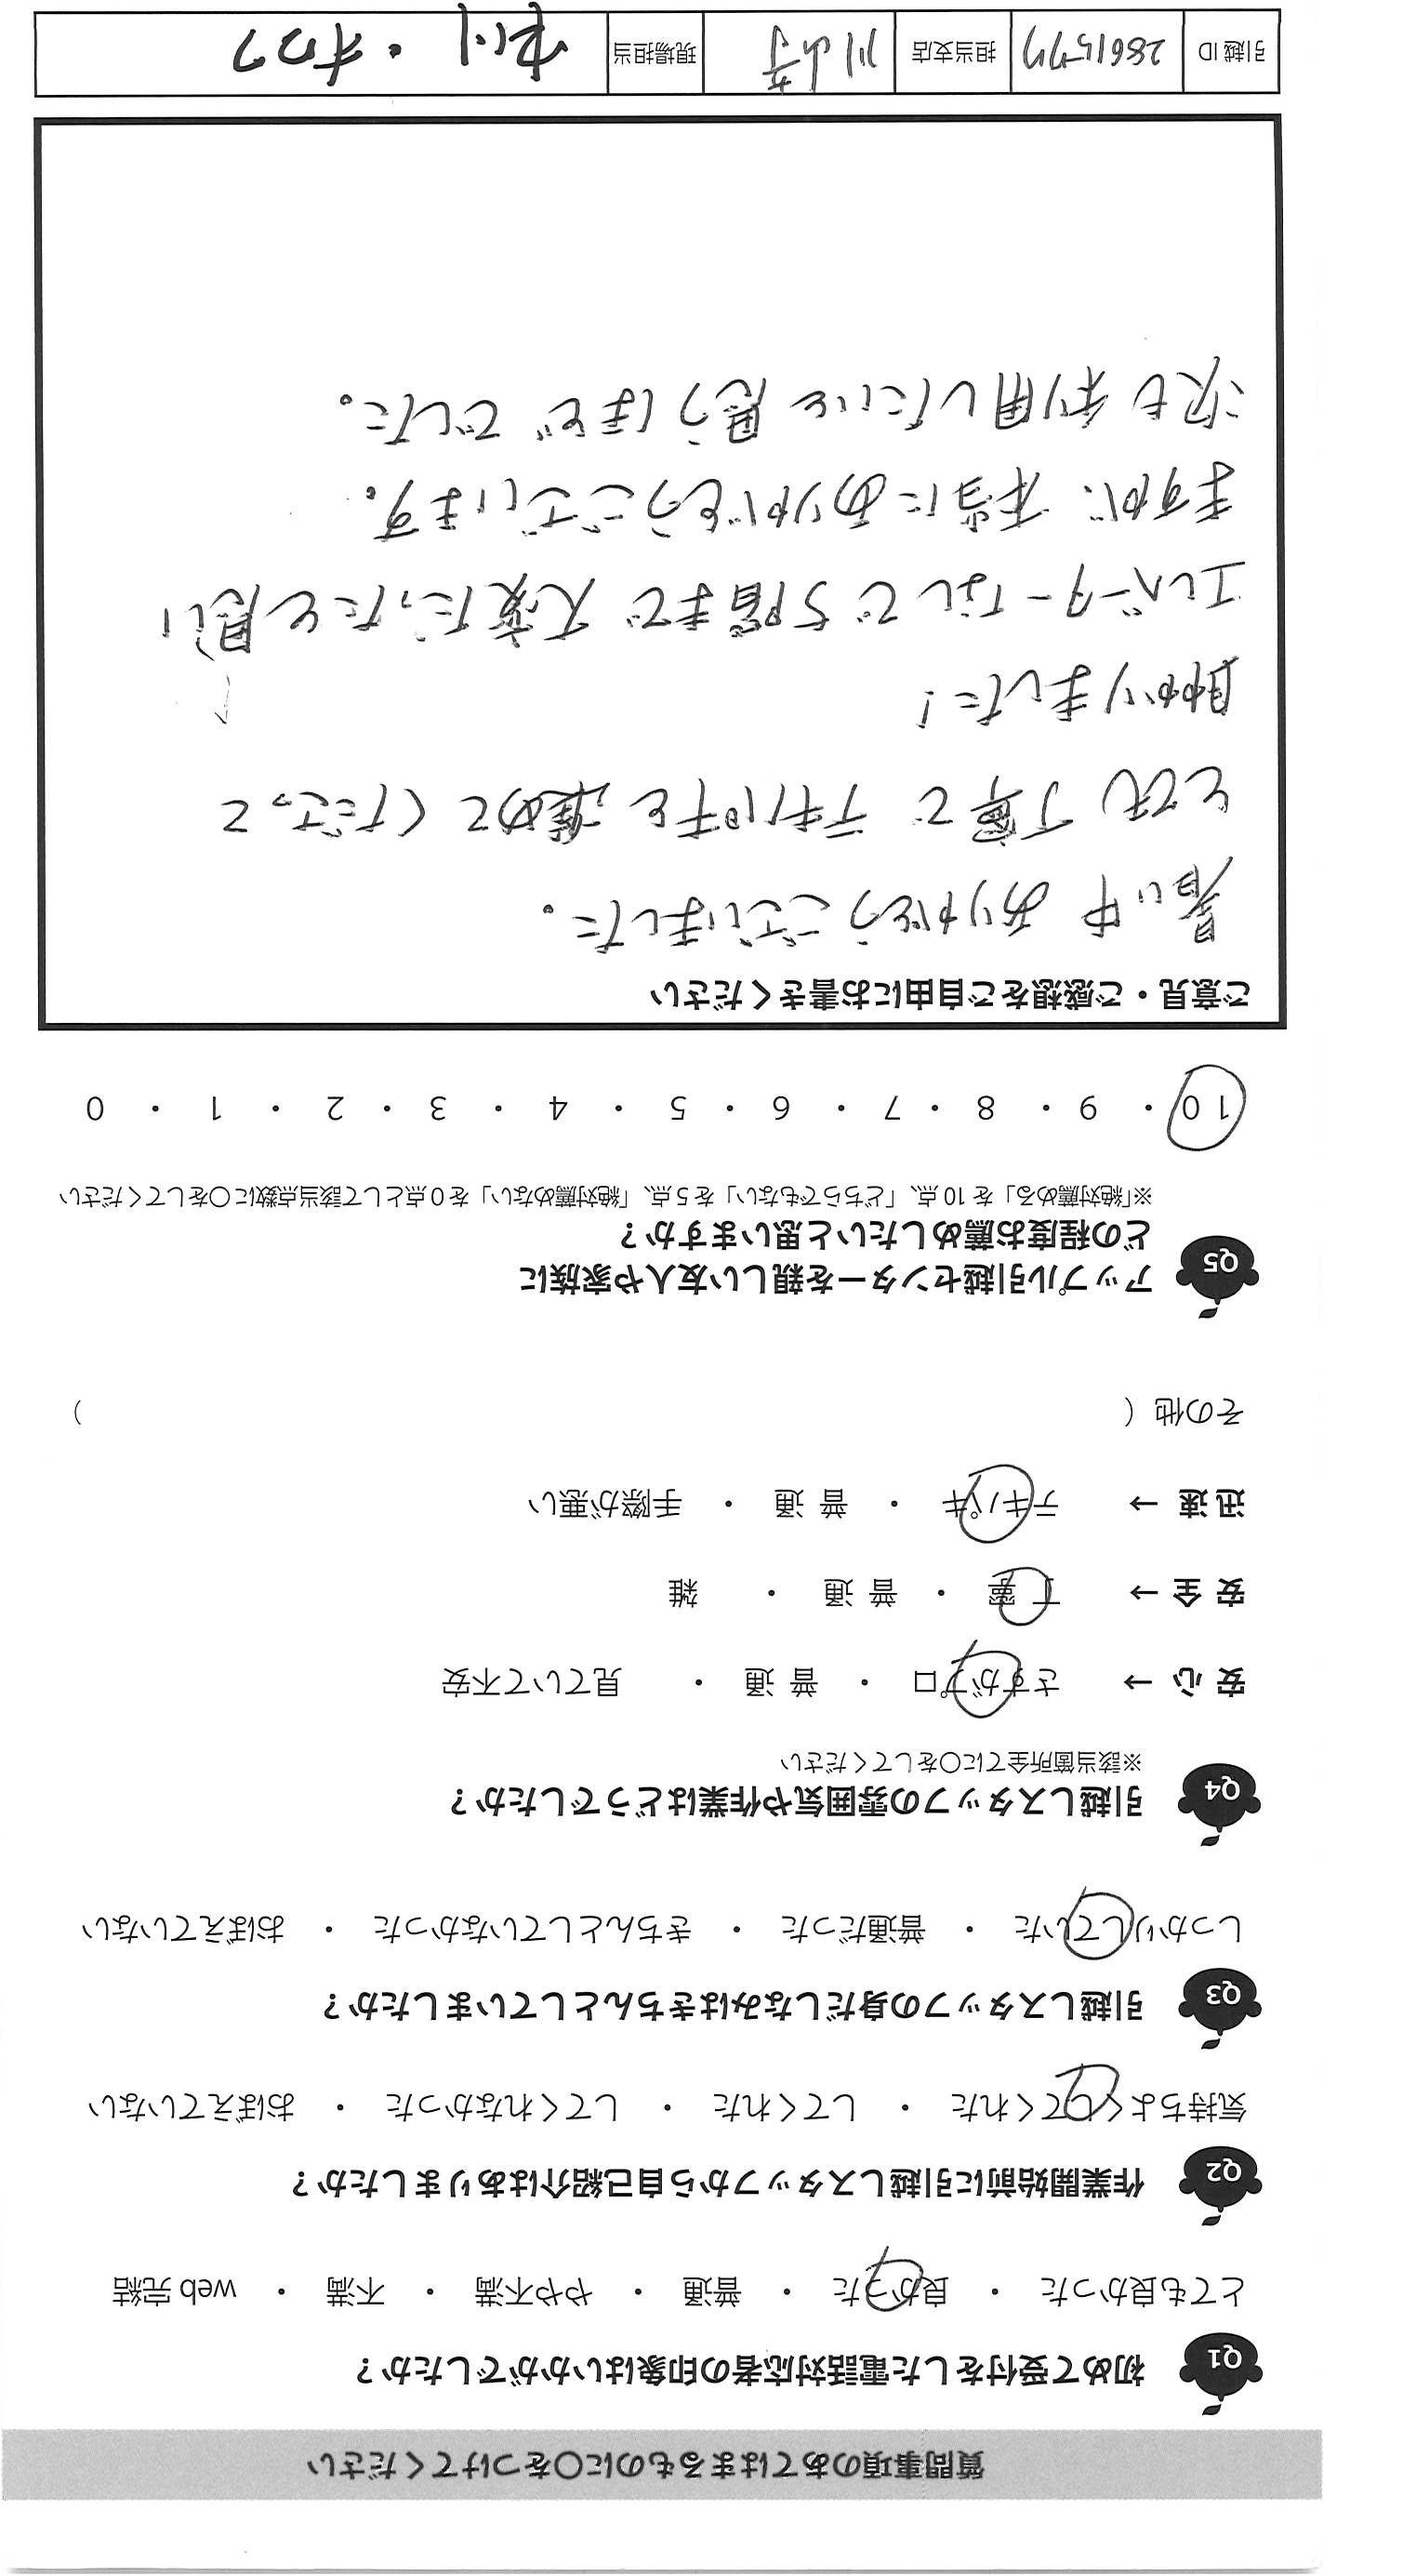 質問事項のあてはまるものに〇をつけてください
Q1 初めて受付をした電話対応者の印象はいかがでしたか？
とても良かった ・ 良かった ・ 普通 ・ やや不満 ・ 不満 ・ web 完結
Q2 作業開始前に引越しスタッフから自己紹介はありましたか？
気持ちよくしてくれた ・ してくれた ・ してくれなかった ・ おぼえていない
Q3 引越しスタッフの身だしなみはきちんとしていましたか？
しっかりしていた ・ 普通だった ・ きちんとしていなかった ・ おぼえていない
Q4 引越しスタッフの雰囲気や作業はどうでしたか？
※該当箇所全てに〇をしてください
安 心 → さすがプロ ・ 普 通 ・ 見ていて不安
安 全 → 丁 寧 ・ 普 通 ・ 雑
迅 速 → テキパキ ・ 普 通 ・ 手際が悪い
その他（ ）
Q5 アップル引越センターを親しい友人や家族に
どの程度お薦めしたいと思いますか？
※「絶対薦める」を 10 点、「どちらでもない」を 5 点、「絶対薦めない」を 0 点として該当点数に〇をしてください
10 ・ 9 ・ 8 ・ 7 ・ 6 ・ 5 ・ 4 ・ 3 ・ 2 ・ 1 ・ 0
ご意見・ご感想をご自由にお書きください
暑い中 ありがとうございました。
とても 丁寧で テキパキと 進めて くださって
助かりました！
エレベーターなしで 5階まで 大変だったと思い
ますが、本当にありがとうございます。
次も利用したいと思うほどでした。
引越 ID 担当支店 川崎 現場担当